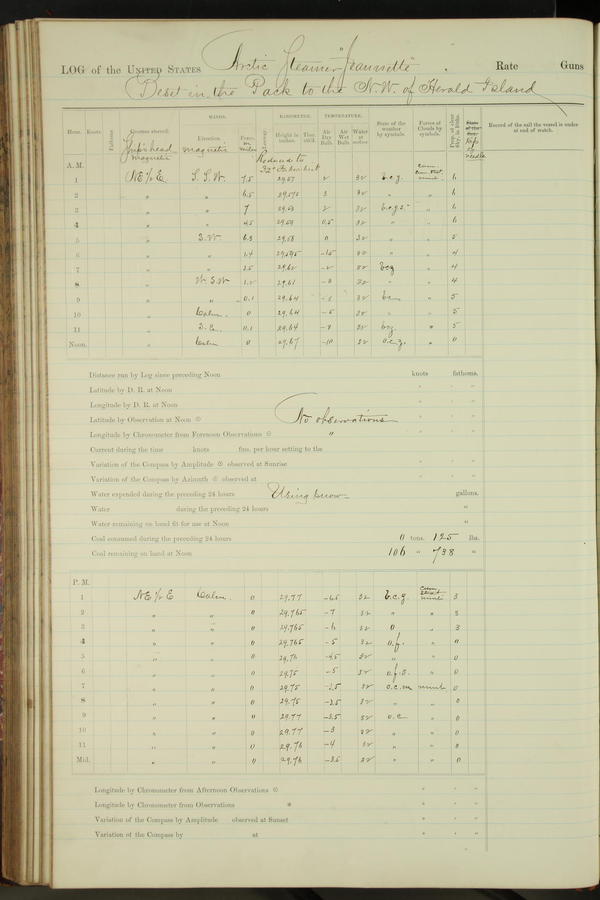 LOG of the UNITED STATES Arctic Steamer "Jeannette" . Rate Guns
Beset in the Pack to the N.W. of Herald Island
WINDS. BAROMETER. TEMPERATURE.
Hour. Knots. Fathoms. Courses steered. Direction. Force. Leeway. Height in inches. Ther. att'd. Air Dry Bulb. Air Wet Bulb. Water at surface State of the weather by symbols. Forms of Clouds by symbols. Prop. of clear Sky, in 10ths. State of the Sea. Record of the sail the vessel is under at end of watch.
Ship's head magnetic magnetic Reduced to 32° Fahrenheit
A. M.
1 NE ½ E S. S. W. 7.5 29.57 2 32 b.c.q. 6
2 " " 6.5 29.575 3 32 " " 6
3 " " 7 2 32 " 6
4 " " 4.5 0.5 32 " " 6
5 " S.W. 29.58 0 32 " " 5
6 " " 1.4 29.595 -1.5 32 " " 4
7 " " 29.62 -2 32 bcq " 4
8 " W.S.W. 29.61 32 " " 4
9 " " 0.1 29.64 32 " 5
10 " Calm. 0 29.64 32 " " 5
11 " S.E. 0.1 29.64 32 " 5
Noon. " Calm 0 29.67 -10 32 " 0
Distance run by Log since preceding Noon knots fathoms.
Latitude by D. R. at Noon ° ' "
Longitude by D. R. at Noon ° ' "
Latitude by Observation at Noon No observations ° ' "
Longitude by Chronometer from Forenoon Observations " ° ' "
Current during the time knots fms. per hour setting to the
Variation of the Compass by Amplitude observed at Sunrise ° ' "
Variation of the Compass by Azimuth observed at ° ' "
Water expended during the preceding 24 hours Using snow gallons.
Water during the preceding 24 hours "
Water remaining on hand fit for use at Noon "
Coal consumed during the preceding 24 hours 0 tons. 125 lbs.
Coal remaining on hand at Noon 106 " 738 "
P. M.
1 NE ½ E Calm. 0 29.77 -6.5 32 b.c.q. 3
2 " " 0 29.765 -7 32 " " 3
3 " " 0 29.765 -6 32 0 " 3
4 " " 0 29.765 -5 32 o.f. " 0
5 " " 0 29.76 -4.5 32 " " 0
6 " " 0 29.75 -5 32 " 0
7 " " 0 29.75 32 o.c.m 0
8 " " 0 29.75 -2.5 32 " " 0
9 " " 0 29.77 32 o.c " 0
10 " " 0 29.77 -3 32 " " 0
11 " " 0 29.76 -4 32 " " 0
Mid. " " 0 29.76 32 " " 0
Longitude by Chronometer from Afternoon Observations ° ' "
Longitude by Chronometer from Observations ° ' "
Variation of the Compass by Amplitude observed at Sunset ° ' "
Variation of the Compass by at ° ' "